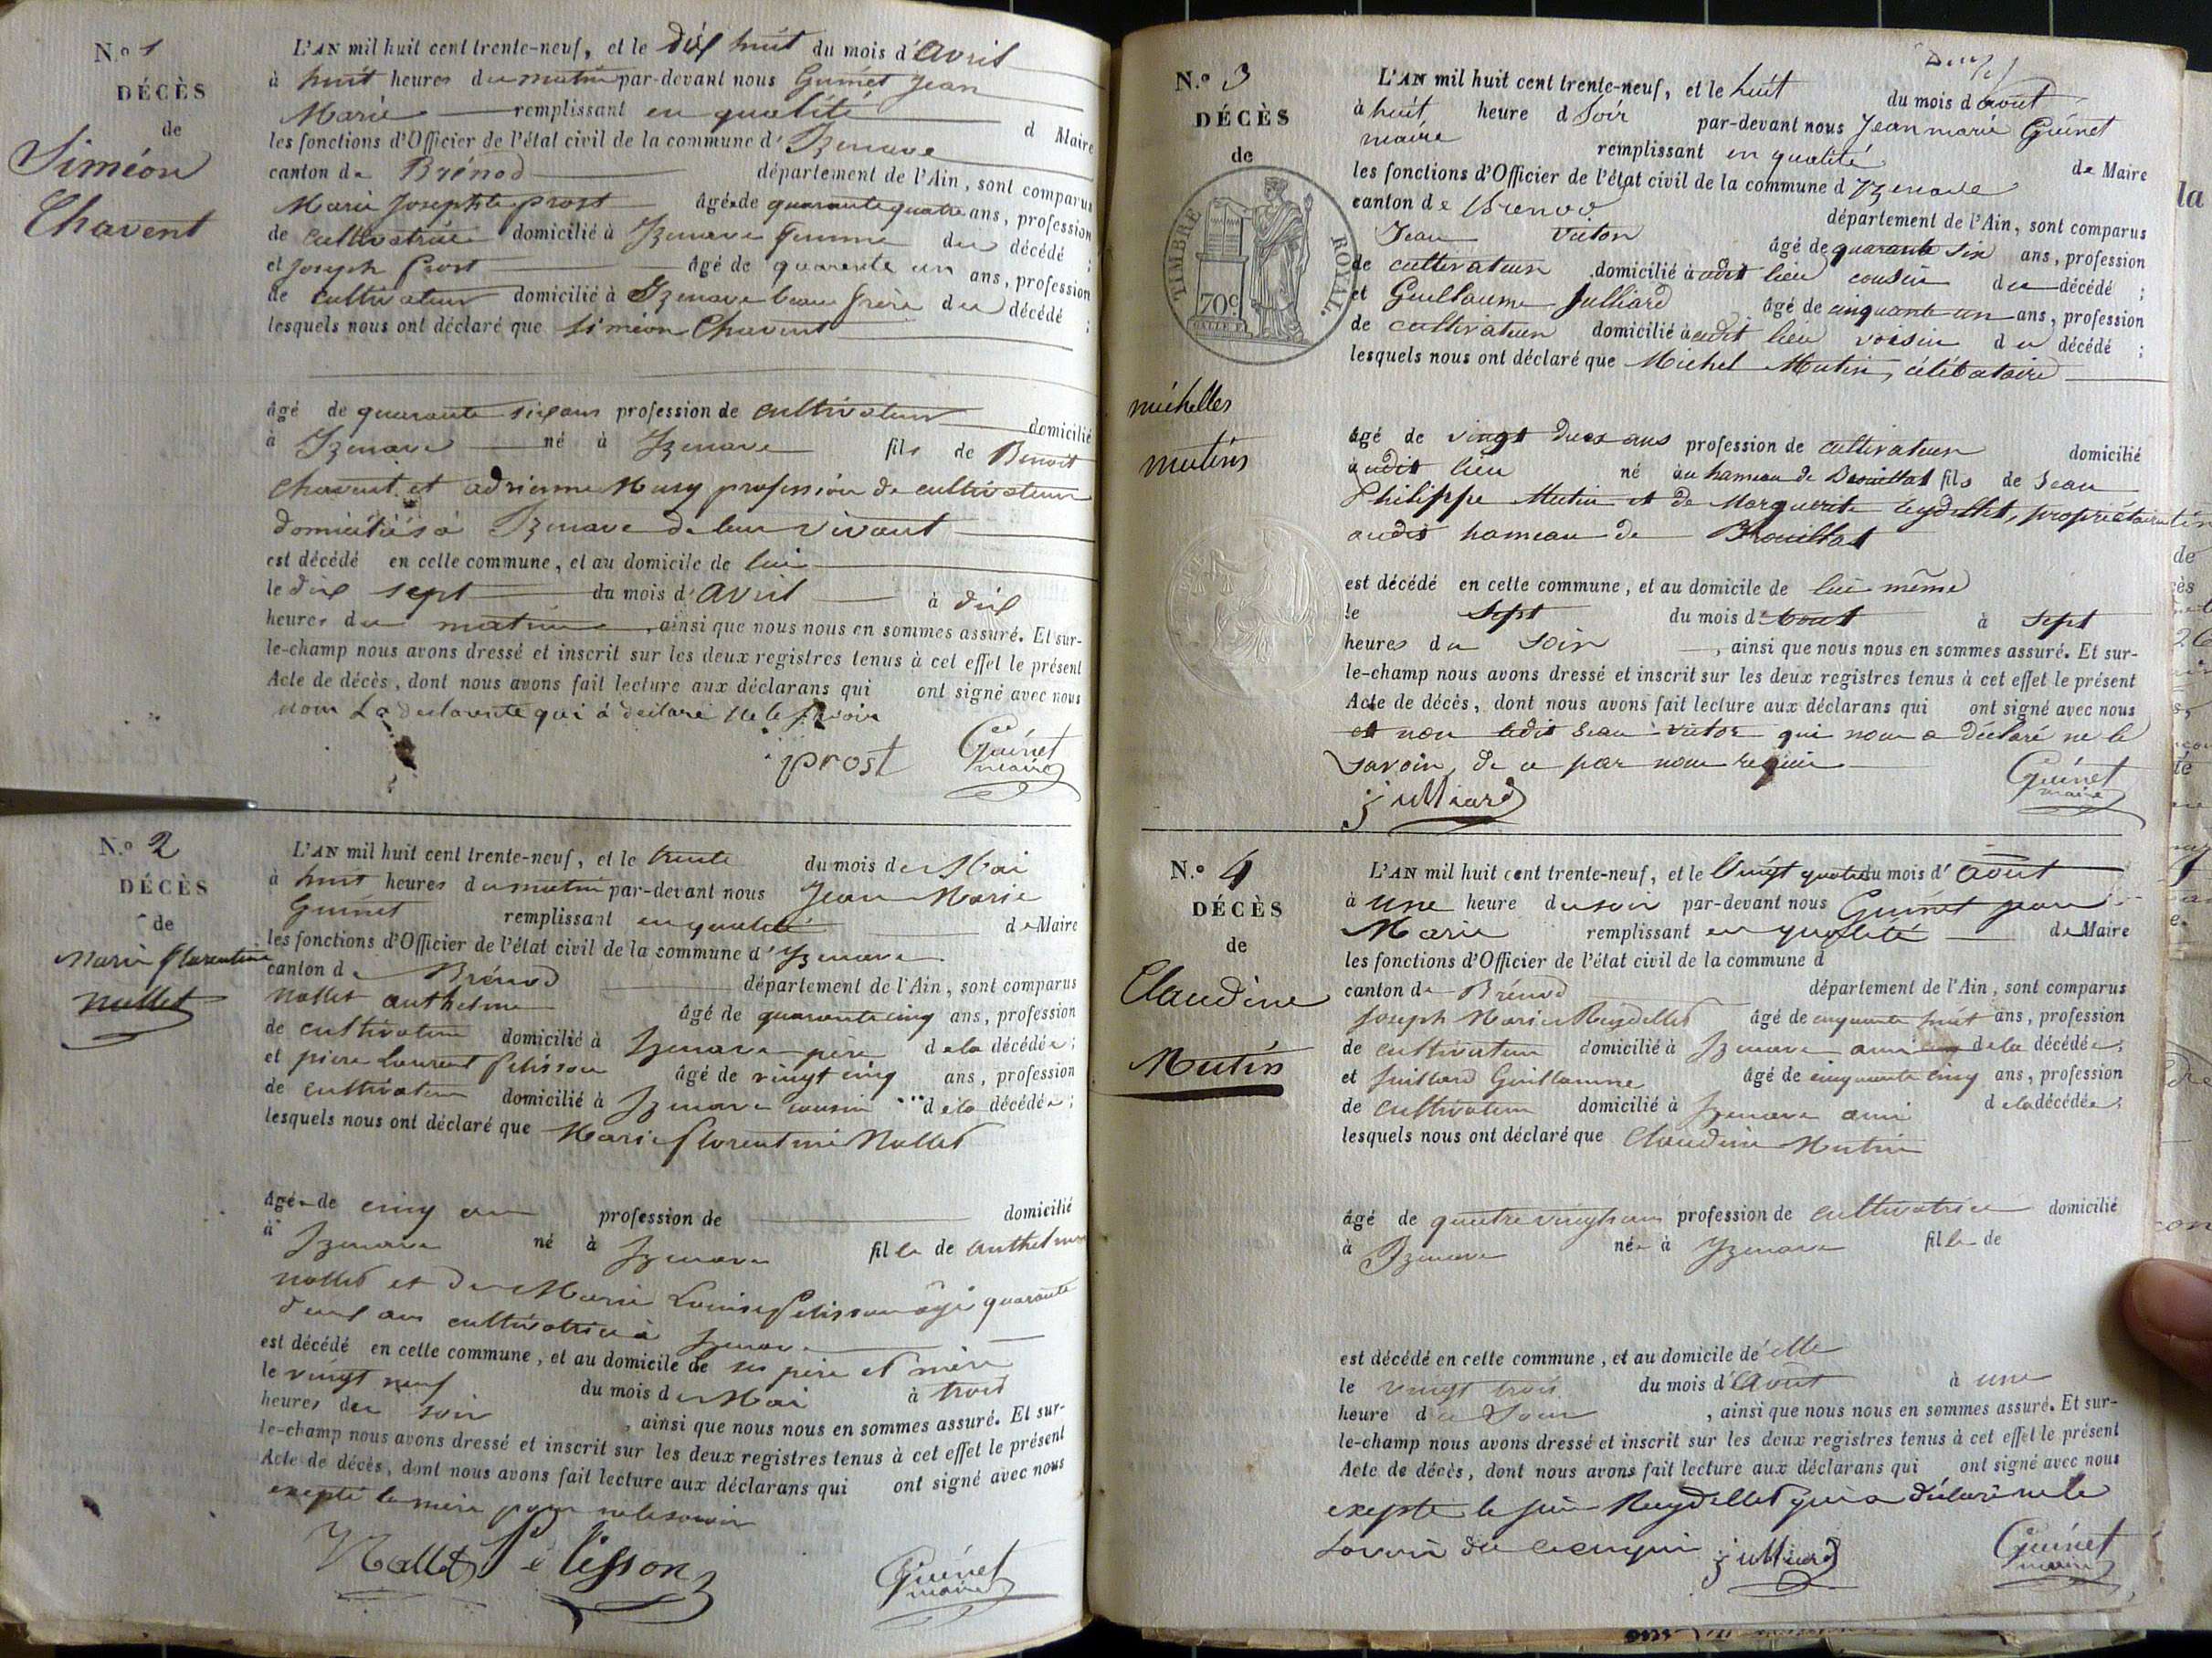 N.o 1
DÉCÈS
de
Siméon
Chavent
L'AN mil huit cent trente-neuf, et le dix huit du mois d'Avril
à huit heures du matin par-devant nous Guinet Jean
Marie remplissant en qualité d Maire
les fonctions d'Officier de l'état civil de la commune d'Izenave
canton de Brénod département de l'Ain, sont comparus
Marie Josephte prost âgée de quarante quatre ans, profession
de cultivatrice domicilié à Izenave femme du décédé ;
et Joseph Prost âgé de quarante un ans, profession
de cultivateur domicilié à Izenave beau frère du décédé ;
lesquels nous ont déclaré que Siméon Chavent
âgé de quarante six ans profession de cultivateur domicilié
à Izenave né à Izenave fils de Benoit
Chavent et adrienne Musy profession de cultivateur
domiciliés à Izenave de leur vivant
est décédé en cette commune, et au domicile de lui
le dix sept du mois d'Avril à dix
heures du matin, ainsi que nous nous en sommes assuré. Et sur-
le-champ nous avons dressé et inscrit sur les deux registres tenus à cet effet le présent
Acte de décès, dont nous avons fait lecture aux déclarans qui ont signé avec nous
non La declarente qui à déclaré ne le savoir
prost Guinet
maire
N.o 2
DÉCÈS
de
Marie florentine
Nallet
L'AN mil huit cent trente-neuf, et le trente du mois de Mai
à huit heures du matin par-devant nous Jean Marie
Guinet remplissant en qualité de Maire
les fonctions d'Officier de l'état civil de la commune d'Yzenave
canton de Brénod département de l'Ain, sont comparus
Nallet anthelme âgé de quarante cinq ans, profession
de cultivateur domicilié à Izenave père de la décédée ;
et pierre Laurent Pelisson âgé de vingt cinq ans, profession
de cultivateur domicilié à Izenave cousin de la décédée ;
lesquels nous ont déclaré que Marie florentine Nallet
âgée de cinq an profession de domicilié
à Izenave né à Izenave fille de anthelme
Nallet et de Marie Louise Pelisson âgé quarante
deux ans cultivatrice à Izenave
est décédé en cette commune, et au domicile de ses père et mère
le vingt neuf du mois de Mai à trois
heures du soir, ainsi que nous nous en sommes assuré. Et sur-
le-champ nous avons dressé et inscrit sur les deux registres tenus à cet effet le présent
Acte de décès, dont nous avons fait lecture aux déclarans qui ont signé avec nous
exepté la mère pour ne le savoir
Nallet Pelisson Guinet
maire
N.o 3
DÉCÈS
de
TIMBRE ROYAL.
70c
michelles
mutins
L'AN mil huit cent trente-neuf, et le huit du mois d aout
à huit heure d Soir par-devant nous Jean marie Guinet
maire remplissant en qualité de Maire
les fonctions d'Officier de l'état civil de la commune d Yzenave
canton de Brenod département de l'Ain, sont comparus
Jean Victon âgé de quarante six ans, profession
de cultivateur domicilié à audit lieu cousin du décédé ;
et Guillaume Julliard âgé de cinquante un ans, profession
de cultivateur domicilié à audit lieu voisin du décédé ;
lesquels nous ont déclaré que Michel Mutin, célébataire
âgé de vingt deux ans profession de cultivateur domicilié
à udit lieu né au hameau de Brouillat fils de Jean
Philippe Mutin et de Marguerite Reydellet, proprietaire
audit hameau de Brouillat
est décédé en cette commune, et au domicile de lui même
le Sept du mois d aout à Sept
heures du Soir, ainsi que nous nous en sommes assuré. Et sur-
le-champ nous avons dressé et inscrit sur les deux registres tenus à cet effet le présent
Acte de décès, dont nous avons fait lecture aux déclarans qui ont signé avec nous
et non ledit Jean Victon qui nous a déclaré ne le
savoir, de ce par nous requis
julliard Guinet
maire
N.o 4
DÉCÈS
de
Claudine
Mutin
L'AN mil huit cent trente-neuf, et le Vingt quatre du mois d'Aout
à une heure du soir par-devant nous Guinet jean
Marie remplissant en qualité de Maire
les fonctions d'Officier de l'état civil de la commune d
canton de Brénod département de l'Ain, sont comparus
Joseph Marie Reydellet âgé de cinquante huit ans, profession
de cultivateur domicilié à Izenave ami de la décédée ;
et Juillard Guillaumne âgé de cinquante cinq ans, profession
de cultivateur domicilié à Izenave ami de la décédée ;
lesquels nous ont déclaré que Claudine Mutin
âgé de quatre vingts ans profession de cultivatrice domicilié
à Izenave née à Yzenave fille de
est décédé en cette commune, et au domicile de elle
le vingt trois du mois d'Aout à une
heure du Soir, ainsi que nous nous en sommes assuré. Et sur-
le-champ nous avons dressé et inscrit sur les deux registres tenus à cet effet le présent
Acte de décès, dont nous avons fait lecture aux déclarans qui ont signé avec nous
exepte le sieur Reydellet qui a déclaré ne le
savoir de ce enquis julliard Guinet
maire